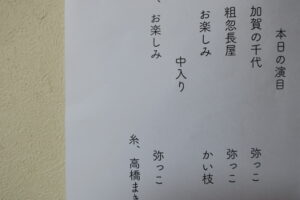 本日の演目
加賀の千代 弥っこ
粗忽長屋 弥っこ
お楽しみ かい枝
中入り
、お楽しみ 弥っこ
糸、高橋まき